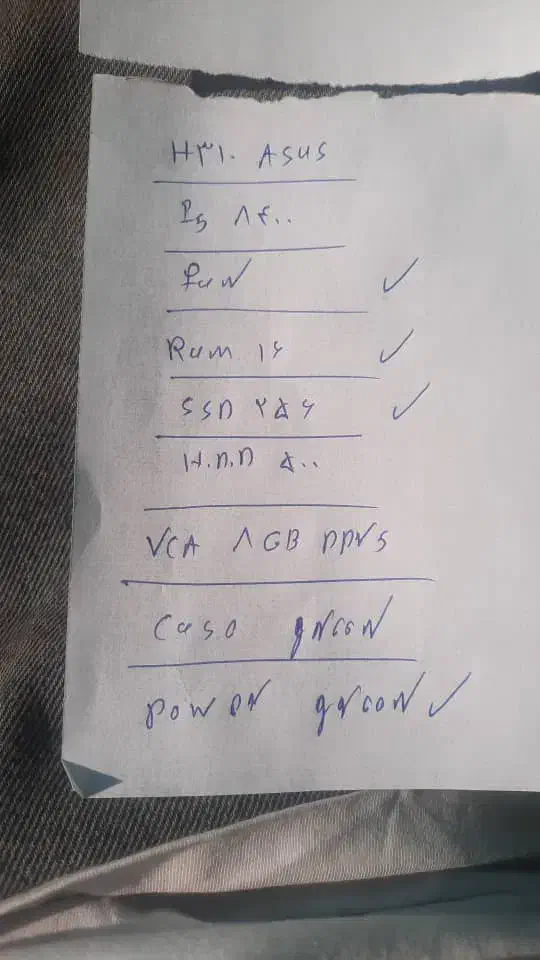 H۳۱۰ ASUS
I5 ۸۴۰۰
Fan ✓
Ram ۱۶ ✓
SSD ۲۵۶ ✓
H.D.D ۵۰۰
VGA ۸ GB DDR5
Case green
Power green ✓